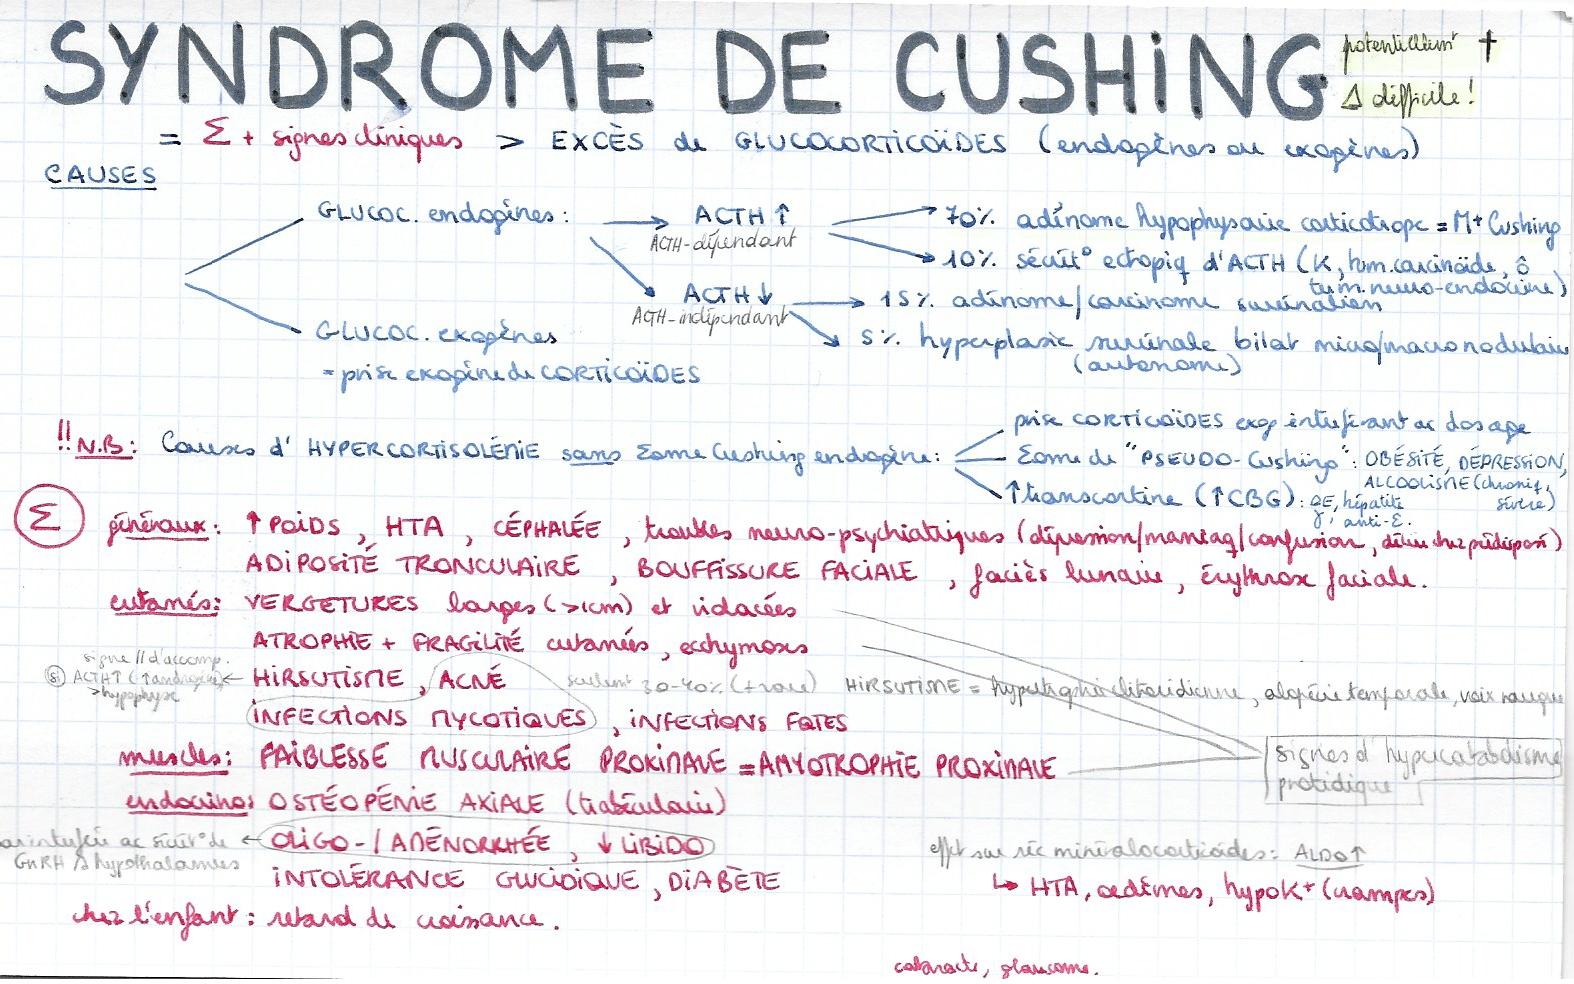 SYNDROME DE CUSHING
potentiellemt †
Δ difficile!
= Σ + signes cliniques > EXCÈS de GLUCOCORTICOÏDES (endogènes ou exogènes)
CAUSES
GLUCOC. endogènes :
ACTH ↑
ACTH-dépendant
70% adénome hypophysaire corticotrope = M+ Cushing
10% sécrét° ectopiq d'ACTH (K, tum. carcinoïde,
tum. neuro-endocrine)
ACTH ↓
ACTH-indépendant
15% adénome/carcinome surrénalien
5% hyperplasie surrénale bilat micro/macronodulaire
(autonome)
GLUCOC. exogènes
= prise exogène de CORTICOÏDES
!! N.B: Causes d'HYPERCORTISOLÉMIE sans Σome Cushing endogène:
prise CORTICOÏDES exog interférant ac dosage
Σome de "PSEUDO-Cushing": OBÉSITÉ, DÉPRESSION,
ALCOOLISME (chroniq, sévère)
↑ transcortine (↑CBG): hépatite
Σ
généraux: ↑ POIDS, HTA, CÉPHALÉE, troubles neuro-psychiatriques (dépression/maniaq/confusion, délire chez prédisposé)
ADIPOSITÉ TRONCULAIRE, BOUFFISSURE FACIALE, faciès lunaire, érythrose faciale.
cutanés: VERGETURES larges (>1cm) et violacées
ATROPHIE + FRAGILITÉ cutanées, ecchymoses
signe // d'accomp.
si ACTH↑ (↑androgènes)
> hypophyse
← HIRSUTISME, ACNÉ
seulement 30-40% (+ rare) HIRSUTISME = hypertrophie clitoridienne, alopécie temporale, voix rauque
INFECTIONS MYCOTIQUES, INFECTIONS FQTES
muscles: FAIBLESSE MUSCULAIRE PROXIMALE = AMYOTROPHIE PROXIMALE
signes d'hypercatabolisme
protidique
endocrino: OSTÉOPÉNIE AXIALE (trabéculaire)
car interfère ac sécrét° de
GnRH hypothalamus
← OLIGO-/AMÉNORRHÉE, ↓ LIBIDO
effet sur réc minéralocorticoïdes: ALDO↑
INTOLÉRANCE GLUCIDIQUE, DIABÈTE
↳ HTA, œdèmes, hypoK+ (crampes)
chez l'enfant : retard de croissance.
cataracte, glaucome.